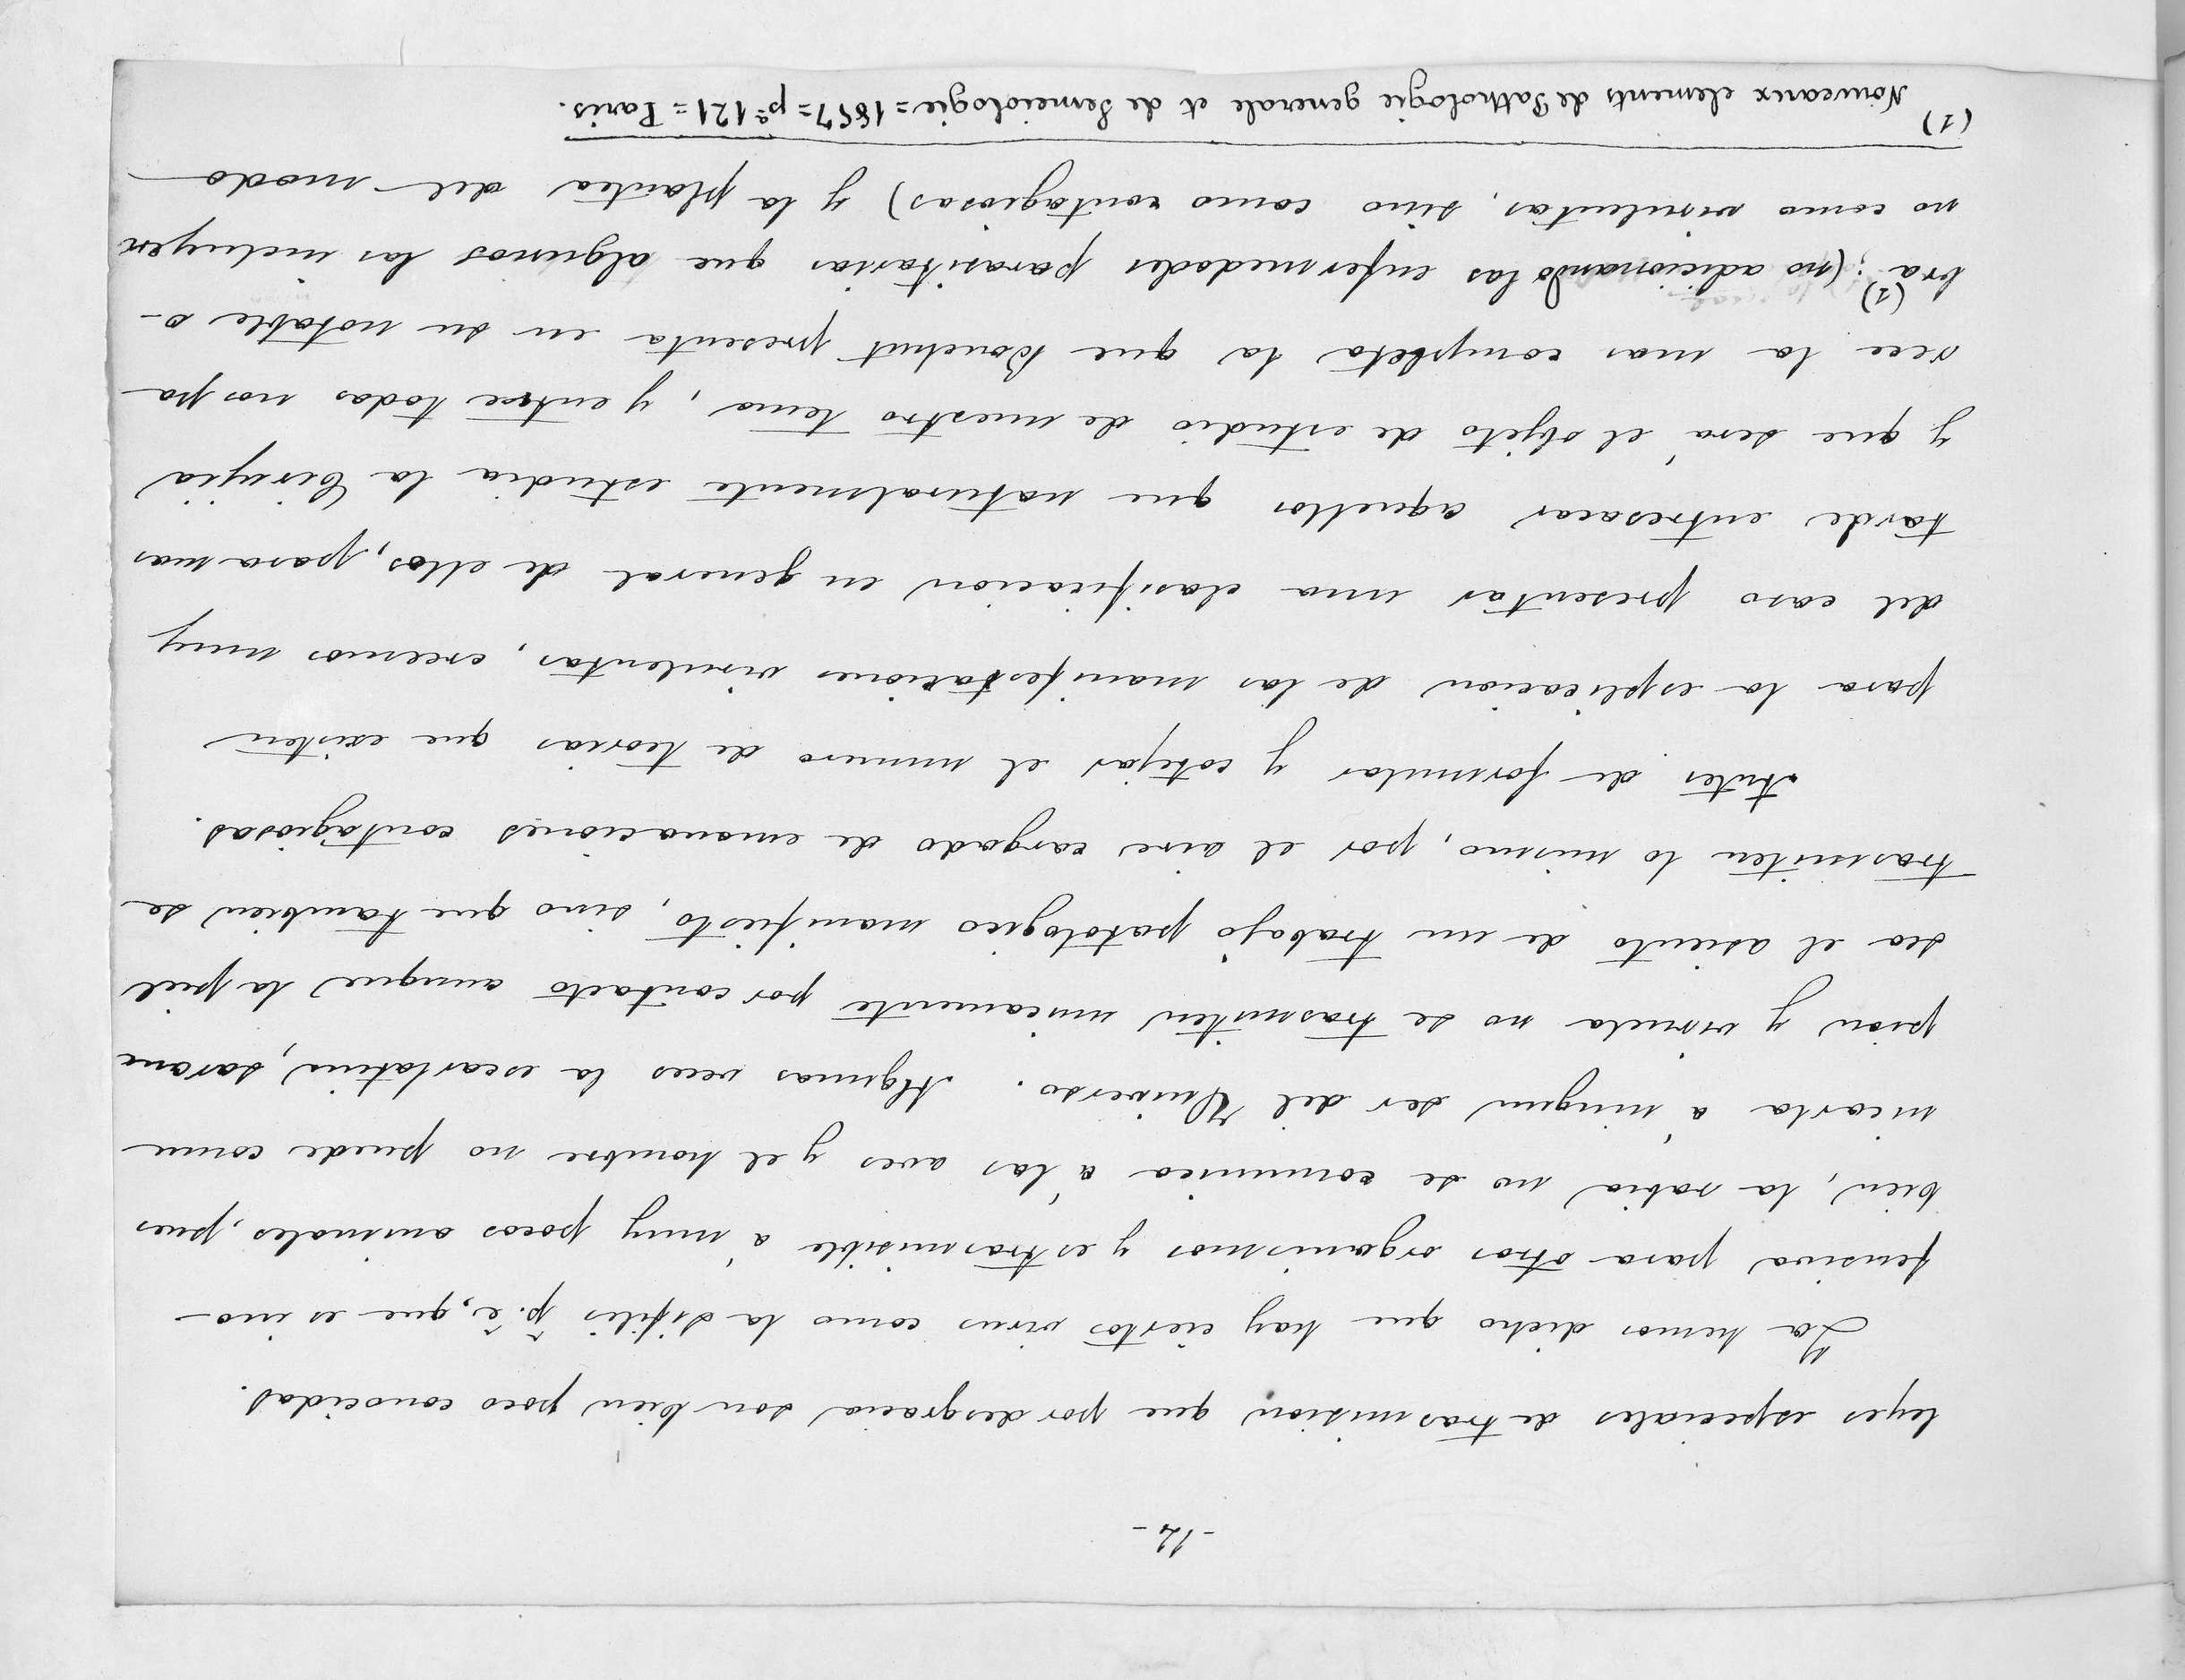 -12-
leyes especiales de trasmision que por desgracia son bien poco conocidas.
Ya hemos dicho que hay ciertos virus como la sifilis p. e, que es ino-
fensiva para otros organismos y es trasmisible á muy pocos animales, pues
bien, la rabia no se comunica á las aves y el hombre no puede comu
nicarla á ningun ser del Universo. Algunas veces la escarlatina, saram
pion y viruela no se trasmiten unicamente por contacto aunque la piel
sea el asiento de un trabajo patologico manifiesto, sino que tambien se
trasmiten lo mismo, por el aire cargado de emanaciones contagiosas.
Antes de formular y cotejar el numero de teorias que existen
para la esplicacion de las manifestaciones virulentas, creemos muy
del caso presentar una clasificacion en general de ellos, para mas
tarde entresacar aquellos que naturalmente estudia la Cirujia
y que será el objeto de estudio de nuestro tema, y entre todas nos pa-
rece la mas completa la que Bouchut presenta en su notable o-
bra (1); (no adicionando las enfermedades parasitarias que algunos las incluyen
no como virulentas, sino como contagiosas) y la plantea del modo
(1) Nouveaux elements de Pathologie generale et de Semeiologie = 1857 = pª 121 = Paris.